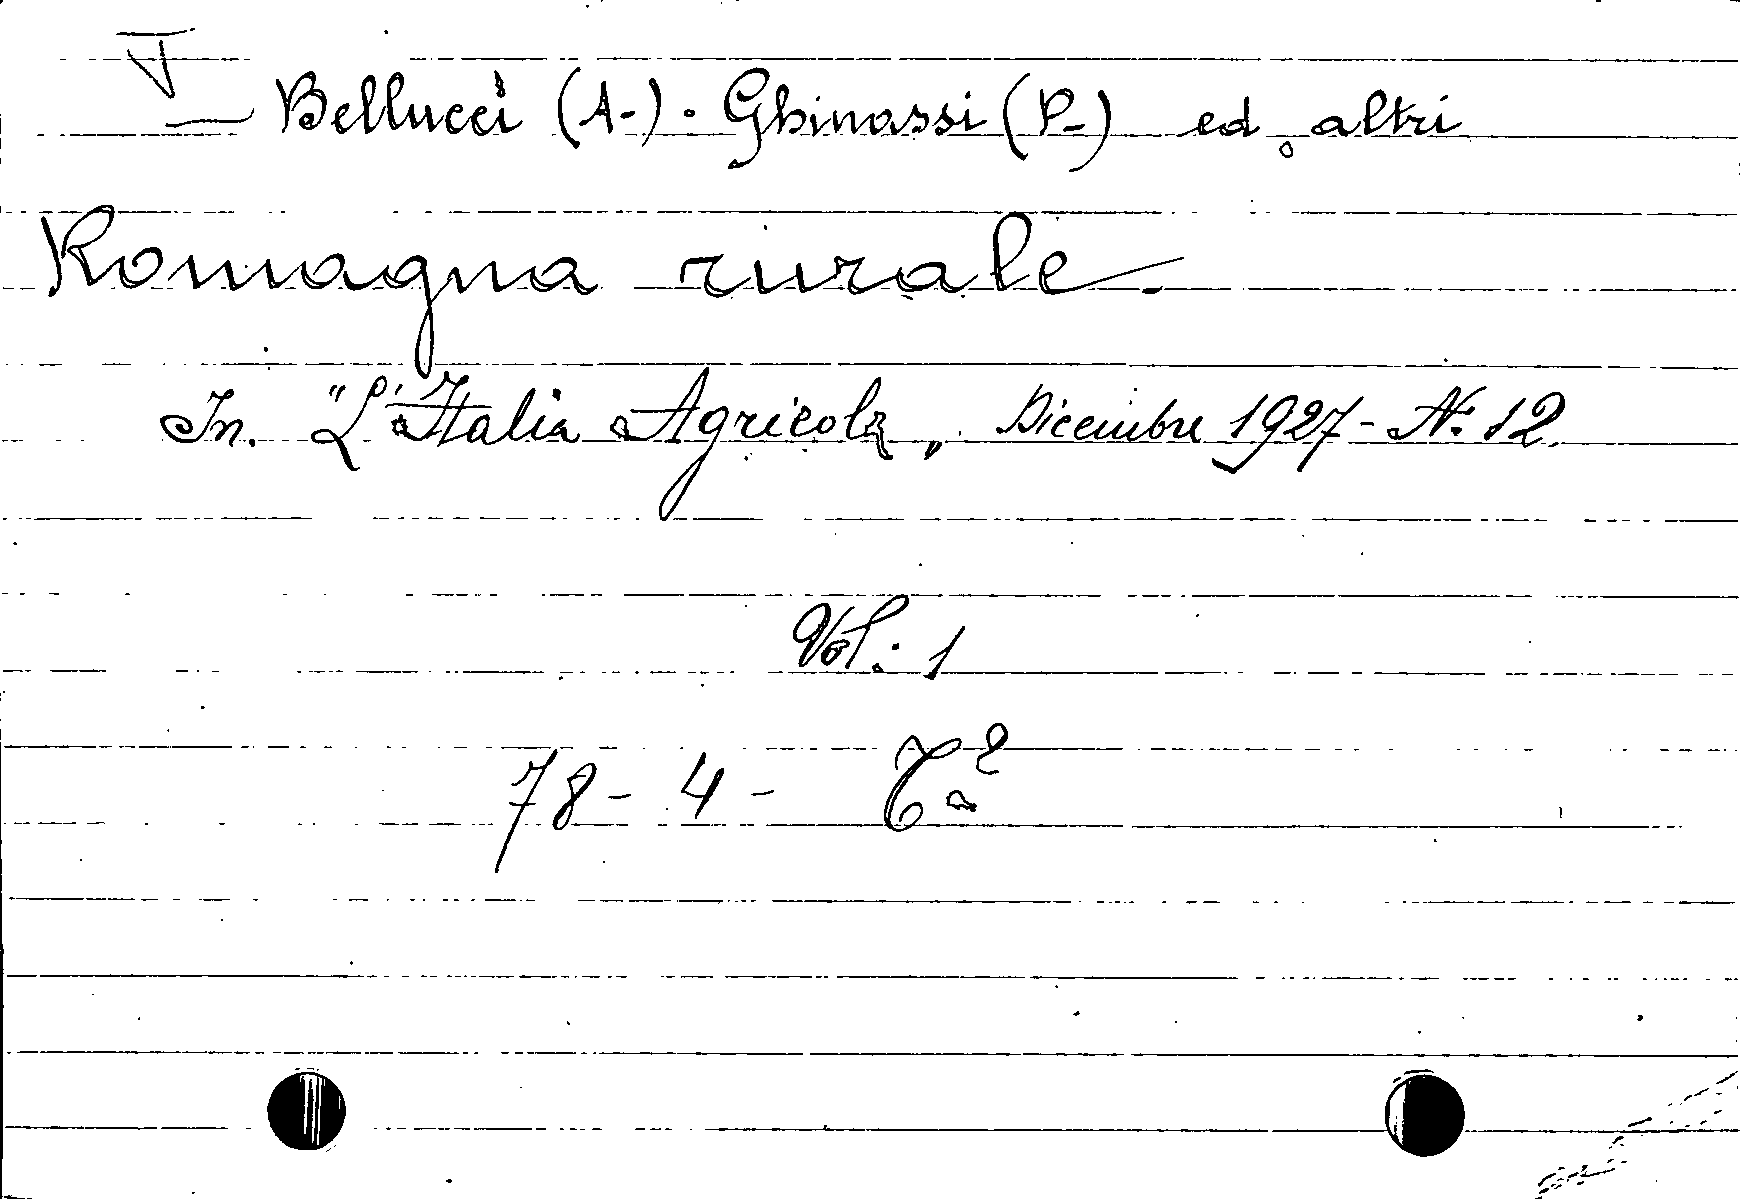 Bellucci (A-). Ghinassi (P-) ed altri
Romagna rurale.
In. "L'Italia Agricola„ Dicembre 1927 - N: 12.
Vol: 1
78 - 4 -